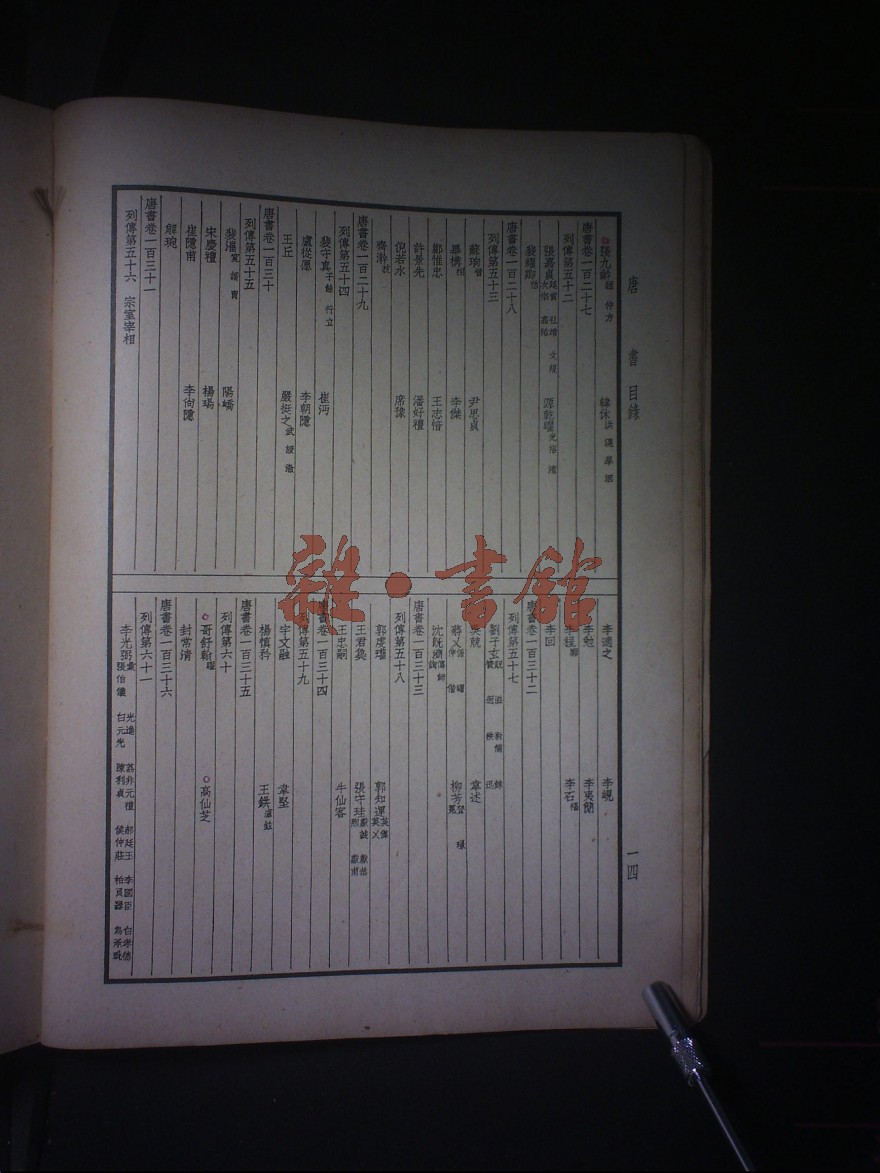 唐書目錄
一四
張九齡 拯 仲方 韓休 洪 滉 皋 洄
唐書卷一百二十七
列傳第五十二
張嘉貞 延賞 弘靖 文規 次宗 嘉祐 源乾曜 光裕 洧
裴耀卿 佶
唐書卷一百二十八
列傳第五十三
蘇珦 晉 尹思貞
畢構 栩 李傑
鄭惟忠 王志愔
許景先 潘好禮
倪若水 席豫
齊澣 抗
唐書卷一百二十九
列傳第五十四
裴守真 子餘 行立 崔沔
盧從愿 李朝隱
王丘 嚴挺之 武 綬 澈
唐書卷一百三十
列傳第五十五
裴漼 寬 諝 冑 陽嶠
宋慶禮 楊瑒
崔隱甫 李尙隱
解琬
唐書卷一百三十一
列傳第五十六 宗室宰相
李適之 李峴
李勉 李夷簡
李程 廓 李石 福
李回
唐書卷一百三十二
列傳第五十七
劉子玄 貺 滋 敦儒 餗 贊 迥 秩 迅
吳兢 韋述
蔣乂 係 曙 伸 偕 柳芳 登 璟 冕
沈旣濟 傳師 詢
唐書卷一百三十三
列傳第五十八
郭虔瓘 郭知運 英傑 英乂
王君㚟 張守珪 獻誠 獻恭 煦 獻甫
王忠嗣 牛仙客
唐書卷一百三十四
列傳第五十九
宇文融 韋堅
楊愼矜 王鉷 盧鉉
唐書卷一百三十五
列傳第六十
哥舒翰 曜 高仙芝
封常淸
唐書卷一百三十六
列傳第六十一
李光弼 彙 光進 荔非元禮 郝廷玉 李國臣 白孝德 張伯儀 白元光 陳利貞 侯仲莊 柏良器 烏承玼
雜·書館